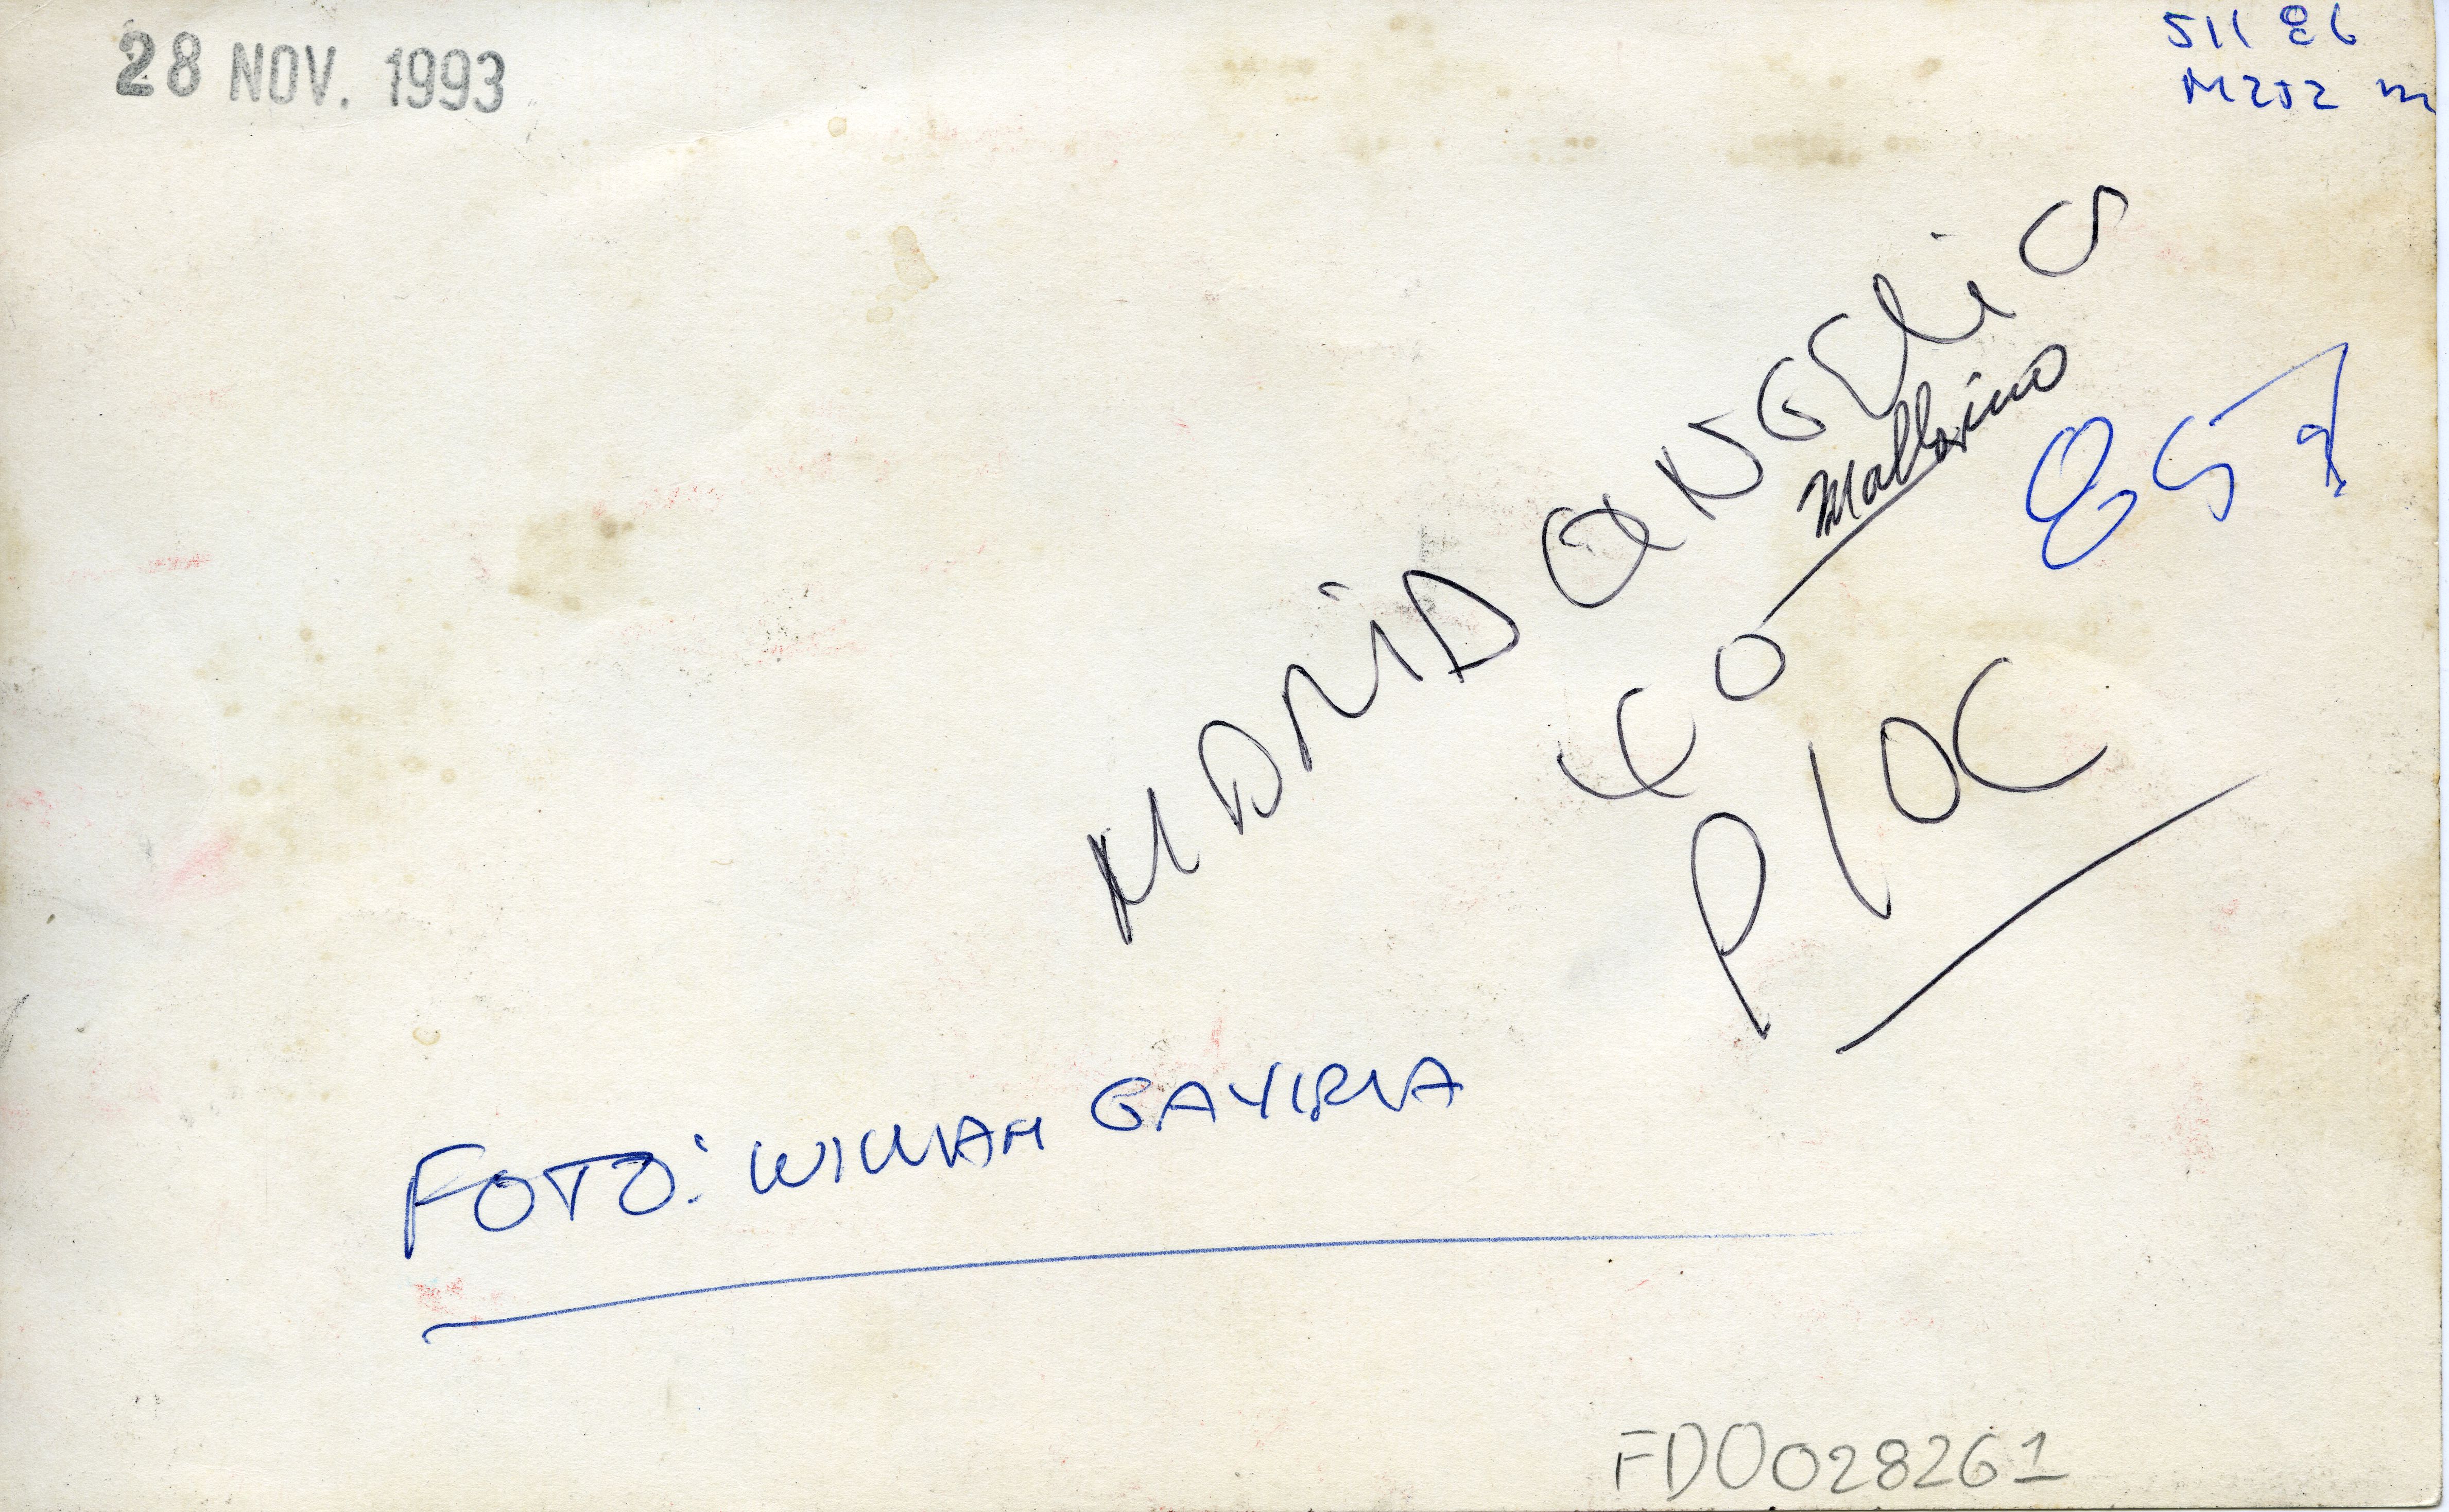 28 NOV. 1993
511 86
M252 m
MARIA ANGELICA
Mallarino
FOTO: WILLIAM GAVIRIA
FD0028261